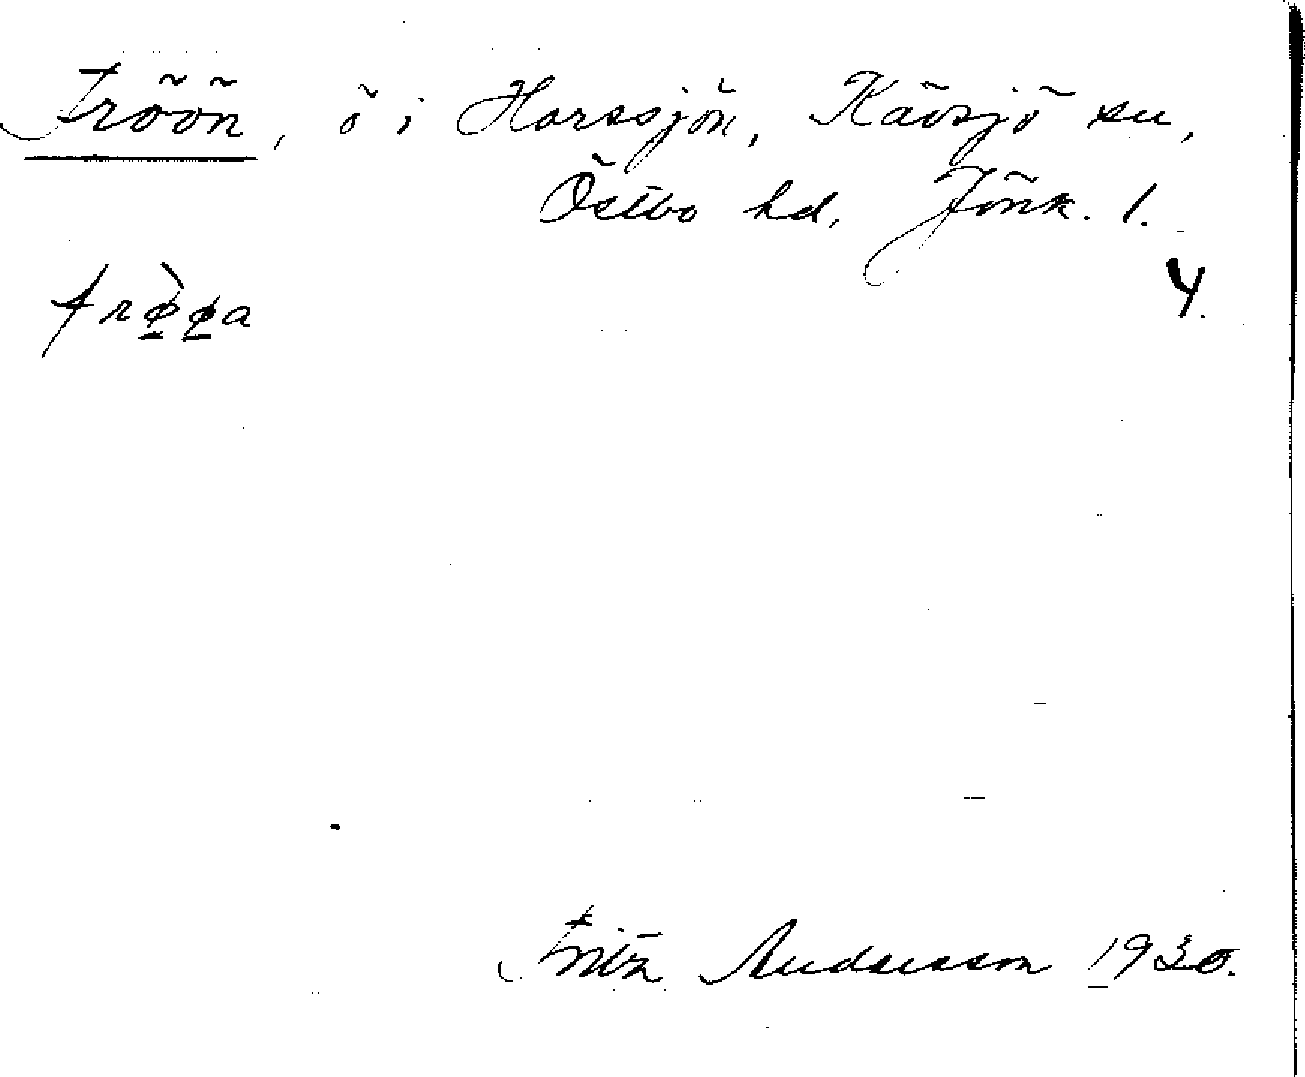 Fröön, ö i Horssjön, Kävsjö sn,
Östbo hd, Jönk. l.
frø̱̀ø̱a
4.
Fritz Andersson 1930.